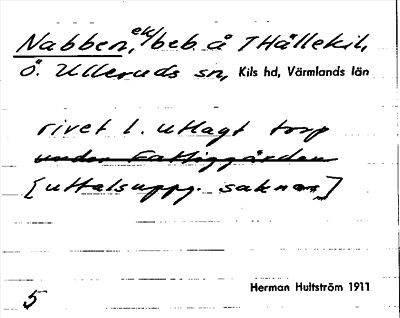 Nabben, ek/beb. å THällekil,
Ö. Ulleruds sn, Kils hd, Värmlands län
rivet l. utlagt torp
under Fattiggården
[uttalsuppg. saknas]
Herman Hultström 1911
5